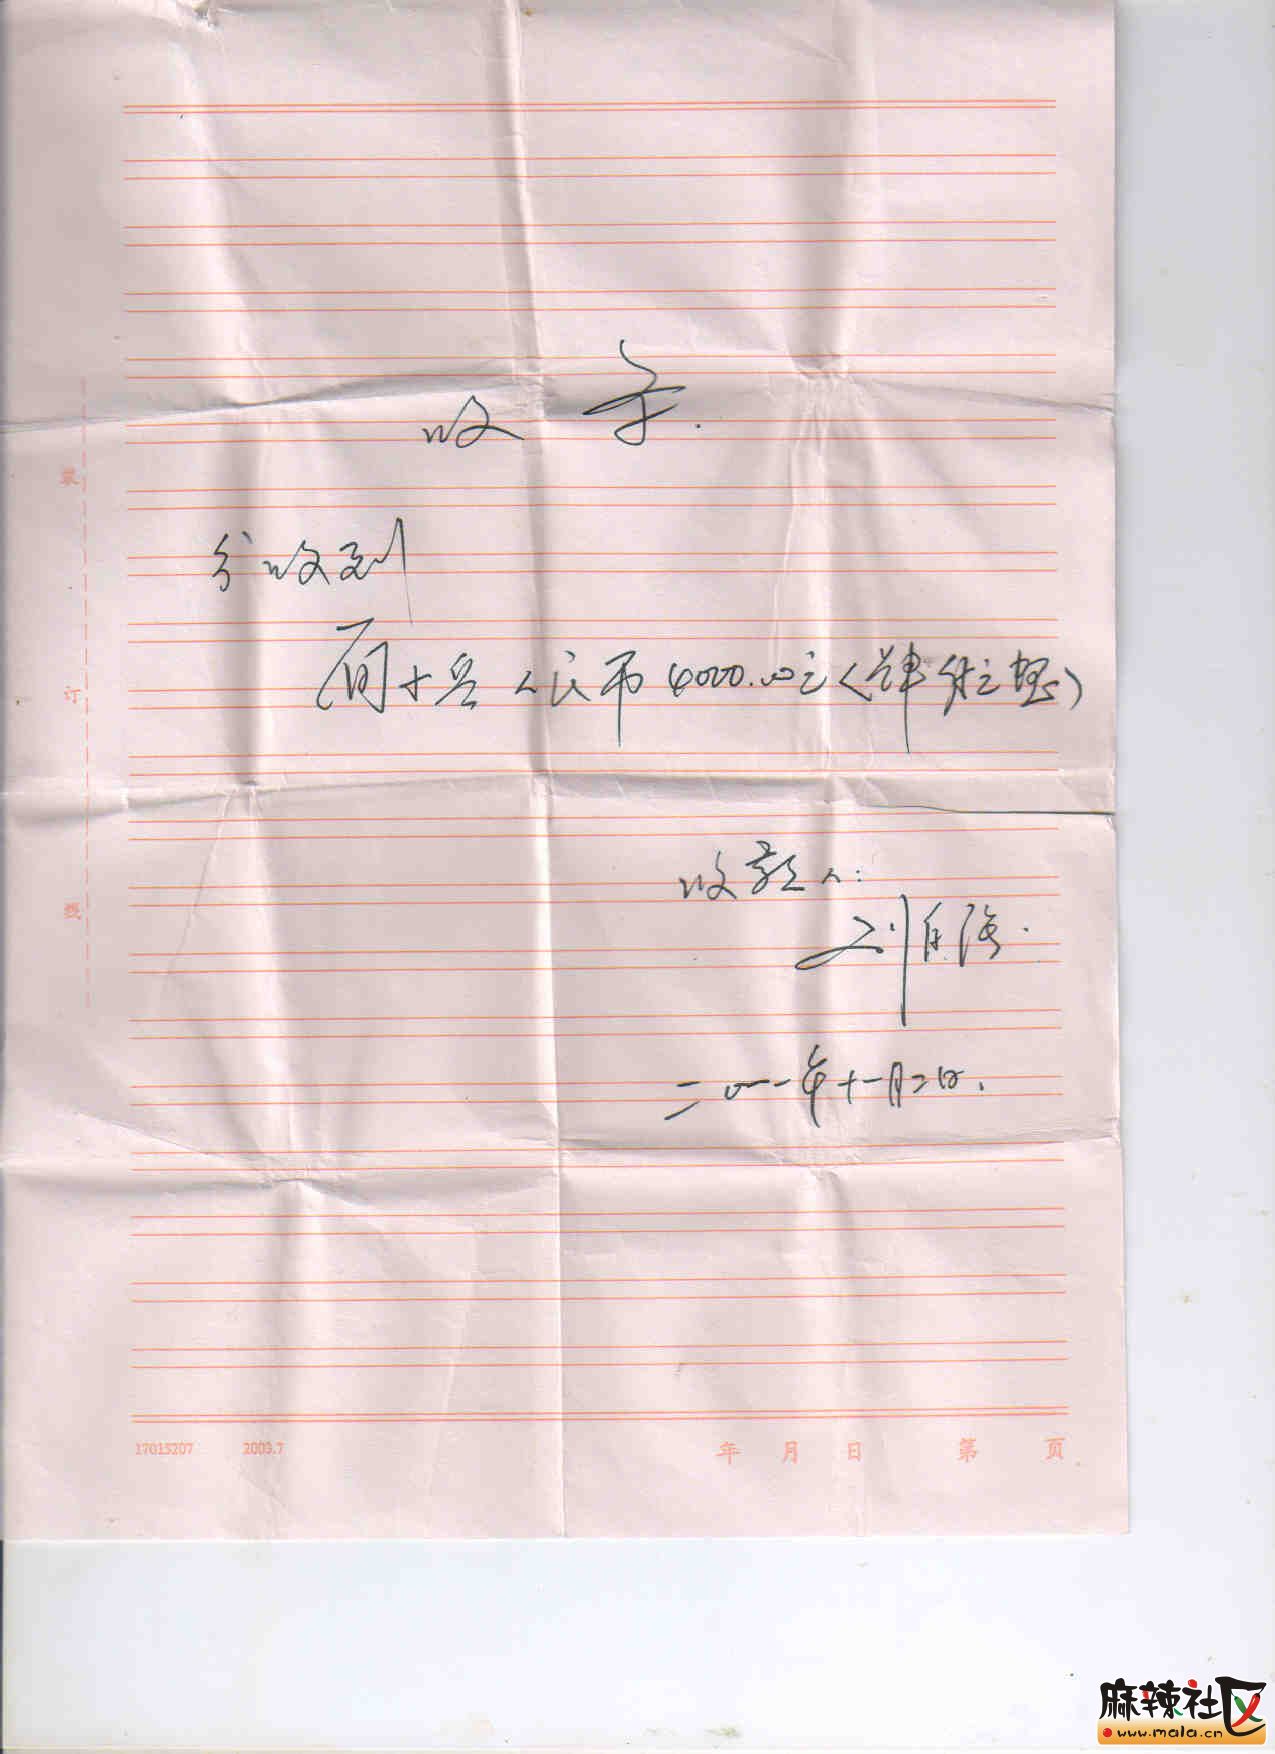 收 条.
今收到
周十兵人民币4000.00元(肆仟元整)
收款人:
刘自海.
二〇一一年十一月二日.
装
订
线
17015207 2003.7 年 月 日 第 页
麻辣社区
www.mala.cn